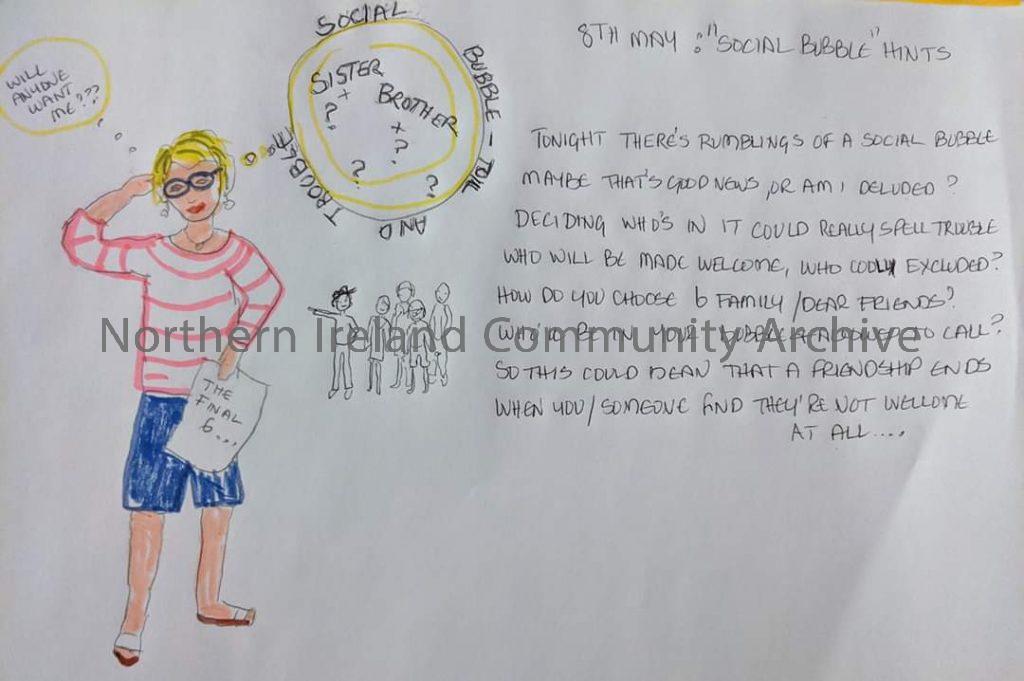 WILL
ANYONE
WANT
ME???
SOCIAL
BUBBLE - TOIL
AND
TROUBLE
SISTER
+
?
BROTHER
+
?
?
?
THE
FINAL
6...
8TH MAY : "SOCIAL BUBBLE" HINTS
TONIGHT THERE'S RUMBLINGS OF A SOCIAL BUBBLE
MAYBE THAT'S GOOD NEWS, OR AM I DELUDED?
DECIDING WHO'S IN IT COULD REALLY SPELL TROUBLE
WHO WILL BE MADE WELCOME, WHO COOLLY EXCLUDED?
HOW DO YOU CHOOSE 6 FAMILY/DEAR FRIENDS?
WHO'D BE IN YOUR BUBBLE TO CALL?
SO THIS COULD MEAN THAT A FRIENDSHIP ENDS
WHEN YOU/SOMEONE FIND THEY'RE NOT WELCOME
AT ALL....
Northern Ireland Community Archive